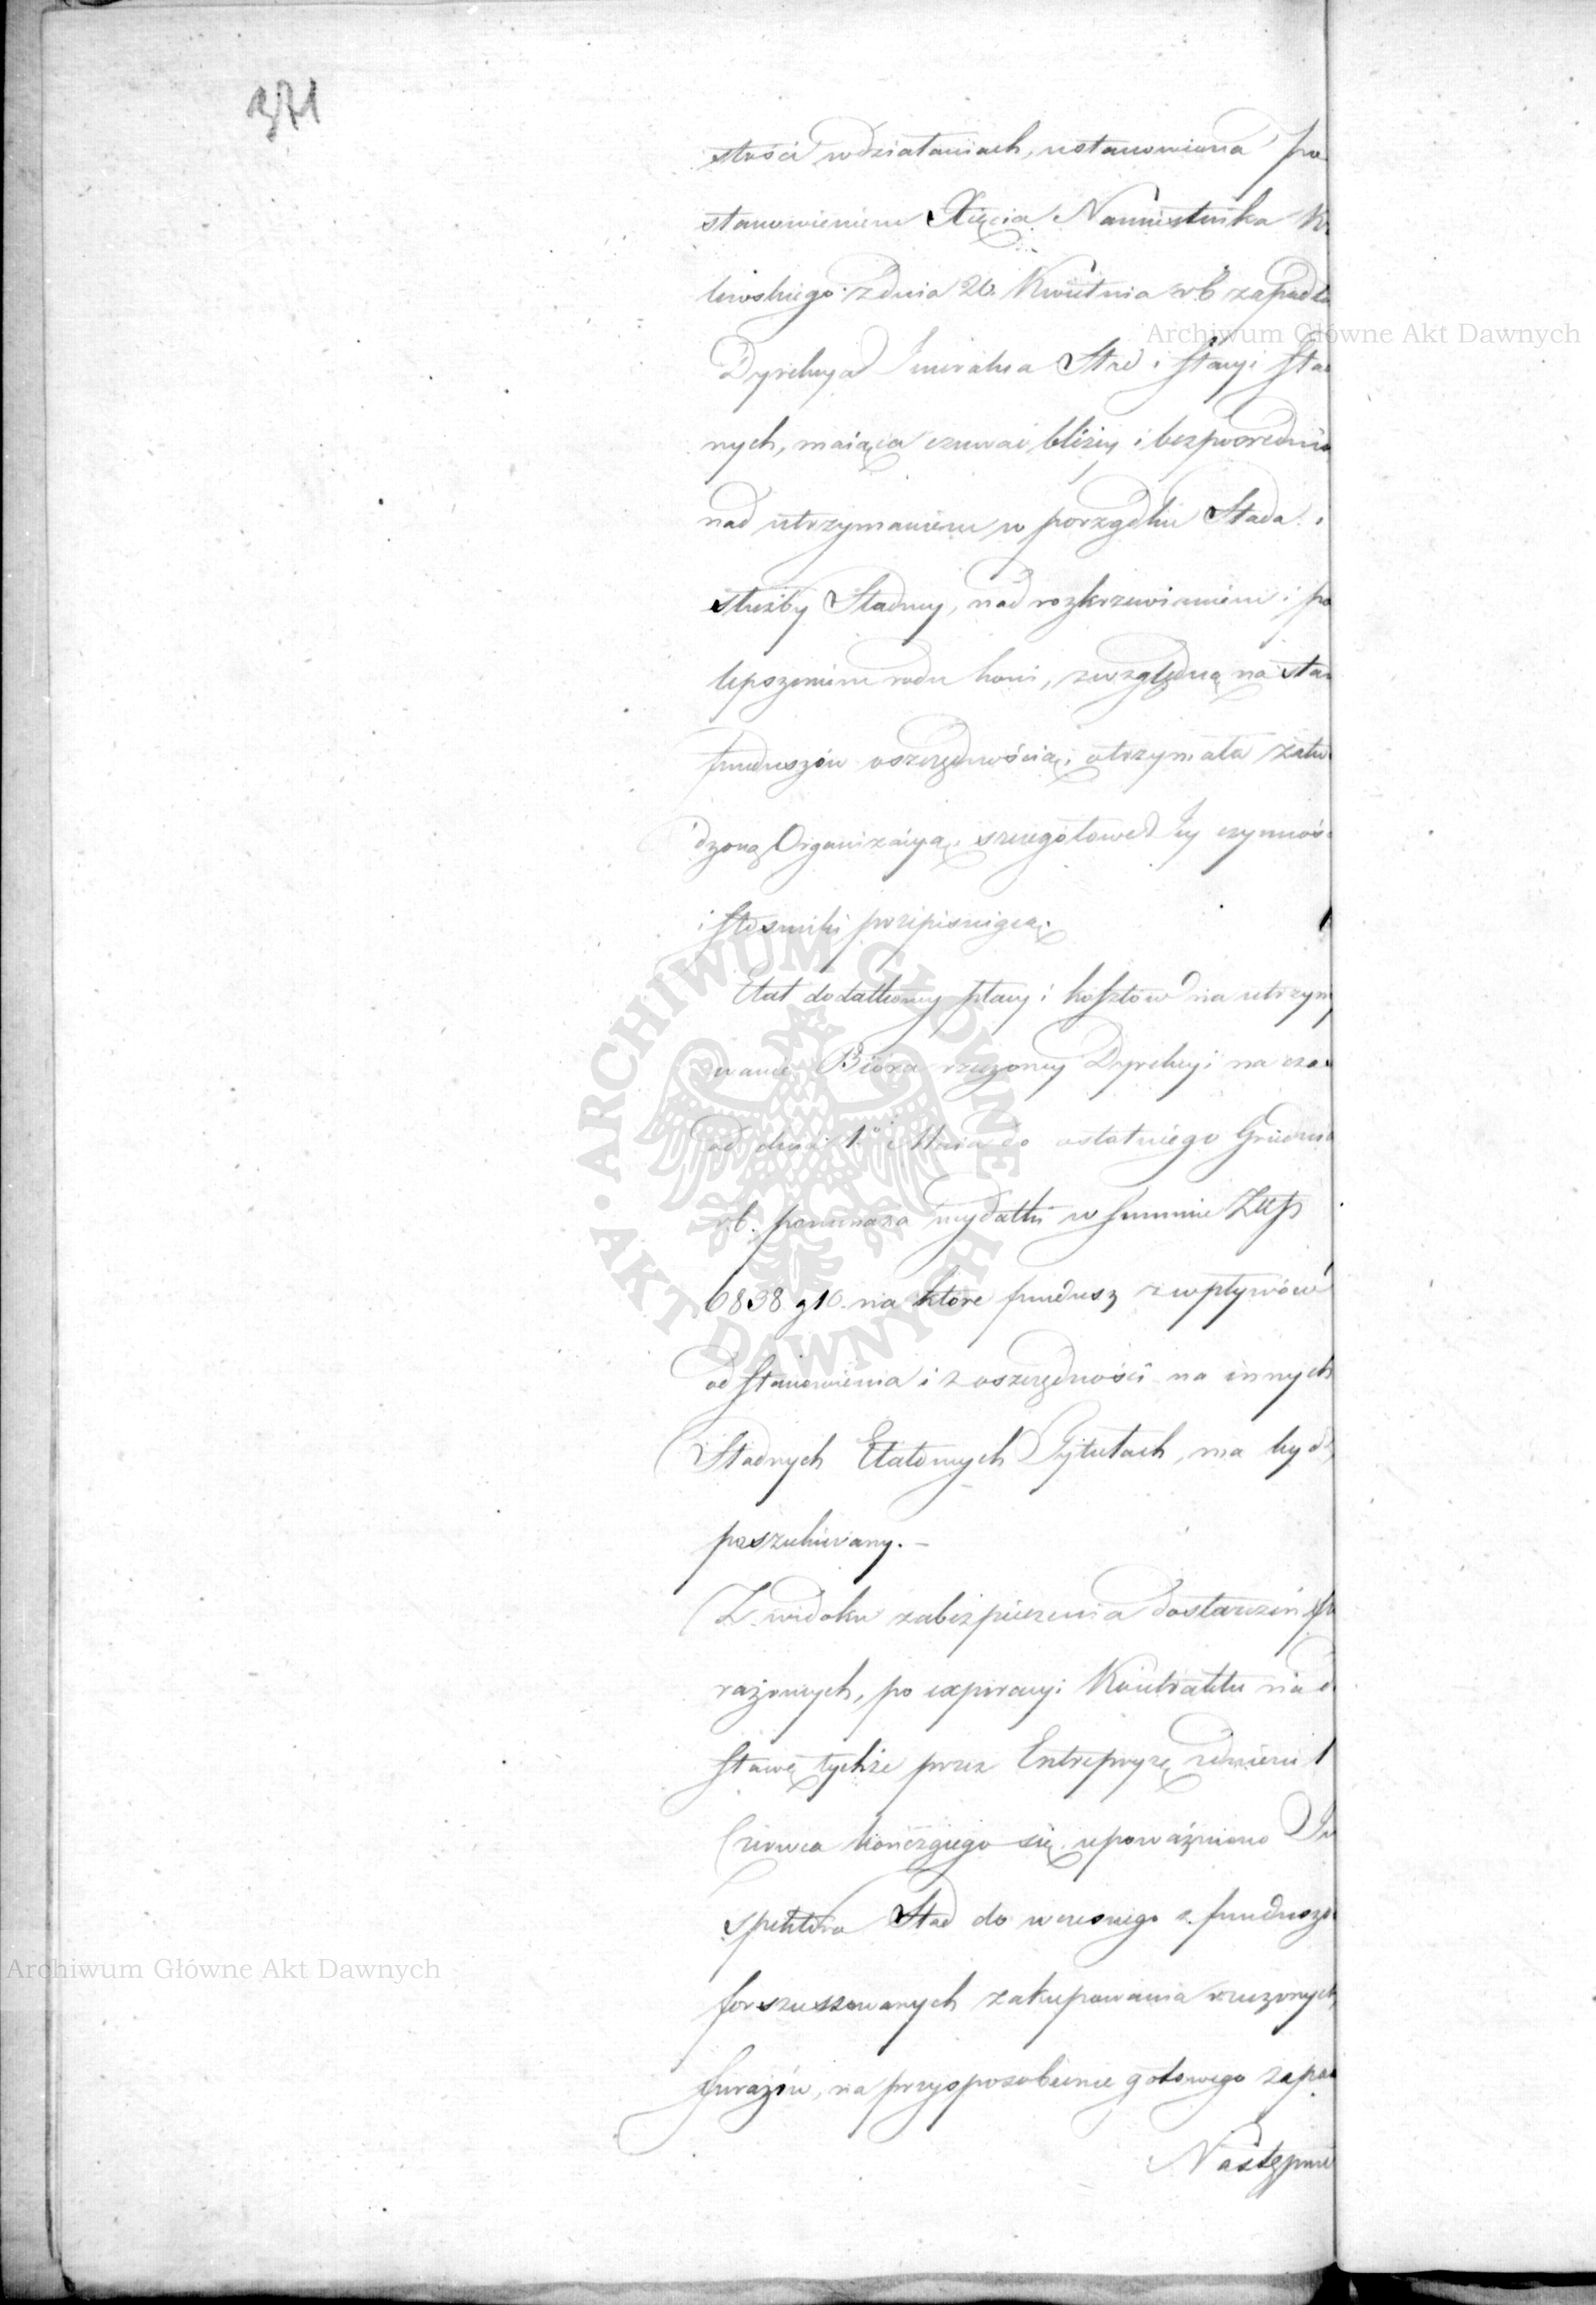 371
stości w działaniach, ustanowiona po
stanowieniem Xięcia Namiestnika K
lewskiego z dnia 20. Kwietnia r. b. zapadło
Archiwum Główne Akt Dawnych
Dyrekcya Jeneralna Stad i Stacyi Sta
nych, maiąca czuwać bliżey i bezpośrednio
nad utrzymaniem w porządku Stada i
służby Stadney, nad rozkrzewieniem i po
lepszeniem rodu koni, z względną na stan
funduszów oszczędnością, otrzymała zatw
dzoną Organizacyą, szczegółowe Jey czynnośc
i stosunki przepisuiącą.
Etat dodatkowy płacy i kosztów na utrzym
wanie Bióra rzeczoney Dyrekcyi na czas
od dnia 1.o Maia do ostatniego Grudnia
r. b. pomnaża wydatki w summie Złłp
6838 g 10. na które fundusz z wpływów
od Stanowienia i z oszczędności na innych
Stadnych Etatowych Tytułach, ma bydź
poszukiwany. –
Z widoku zabezpieczenia dostarczeń fu
rażowych, po expiracyi Kontraktu na do
stawę tychże przez Entrepryzę z dniem 1
Czerwca kończącego się, upoważniono In
spektora Stad do wczesnego z funduszó
forszussowanych zakupowania rzeczonych
furażów, na przysposobienie gotowego zapas
Archiwum Główne Akt Dawnych
Następnie
ARCHIWUM GŁÓWNE AKT DAWNYCH